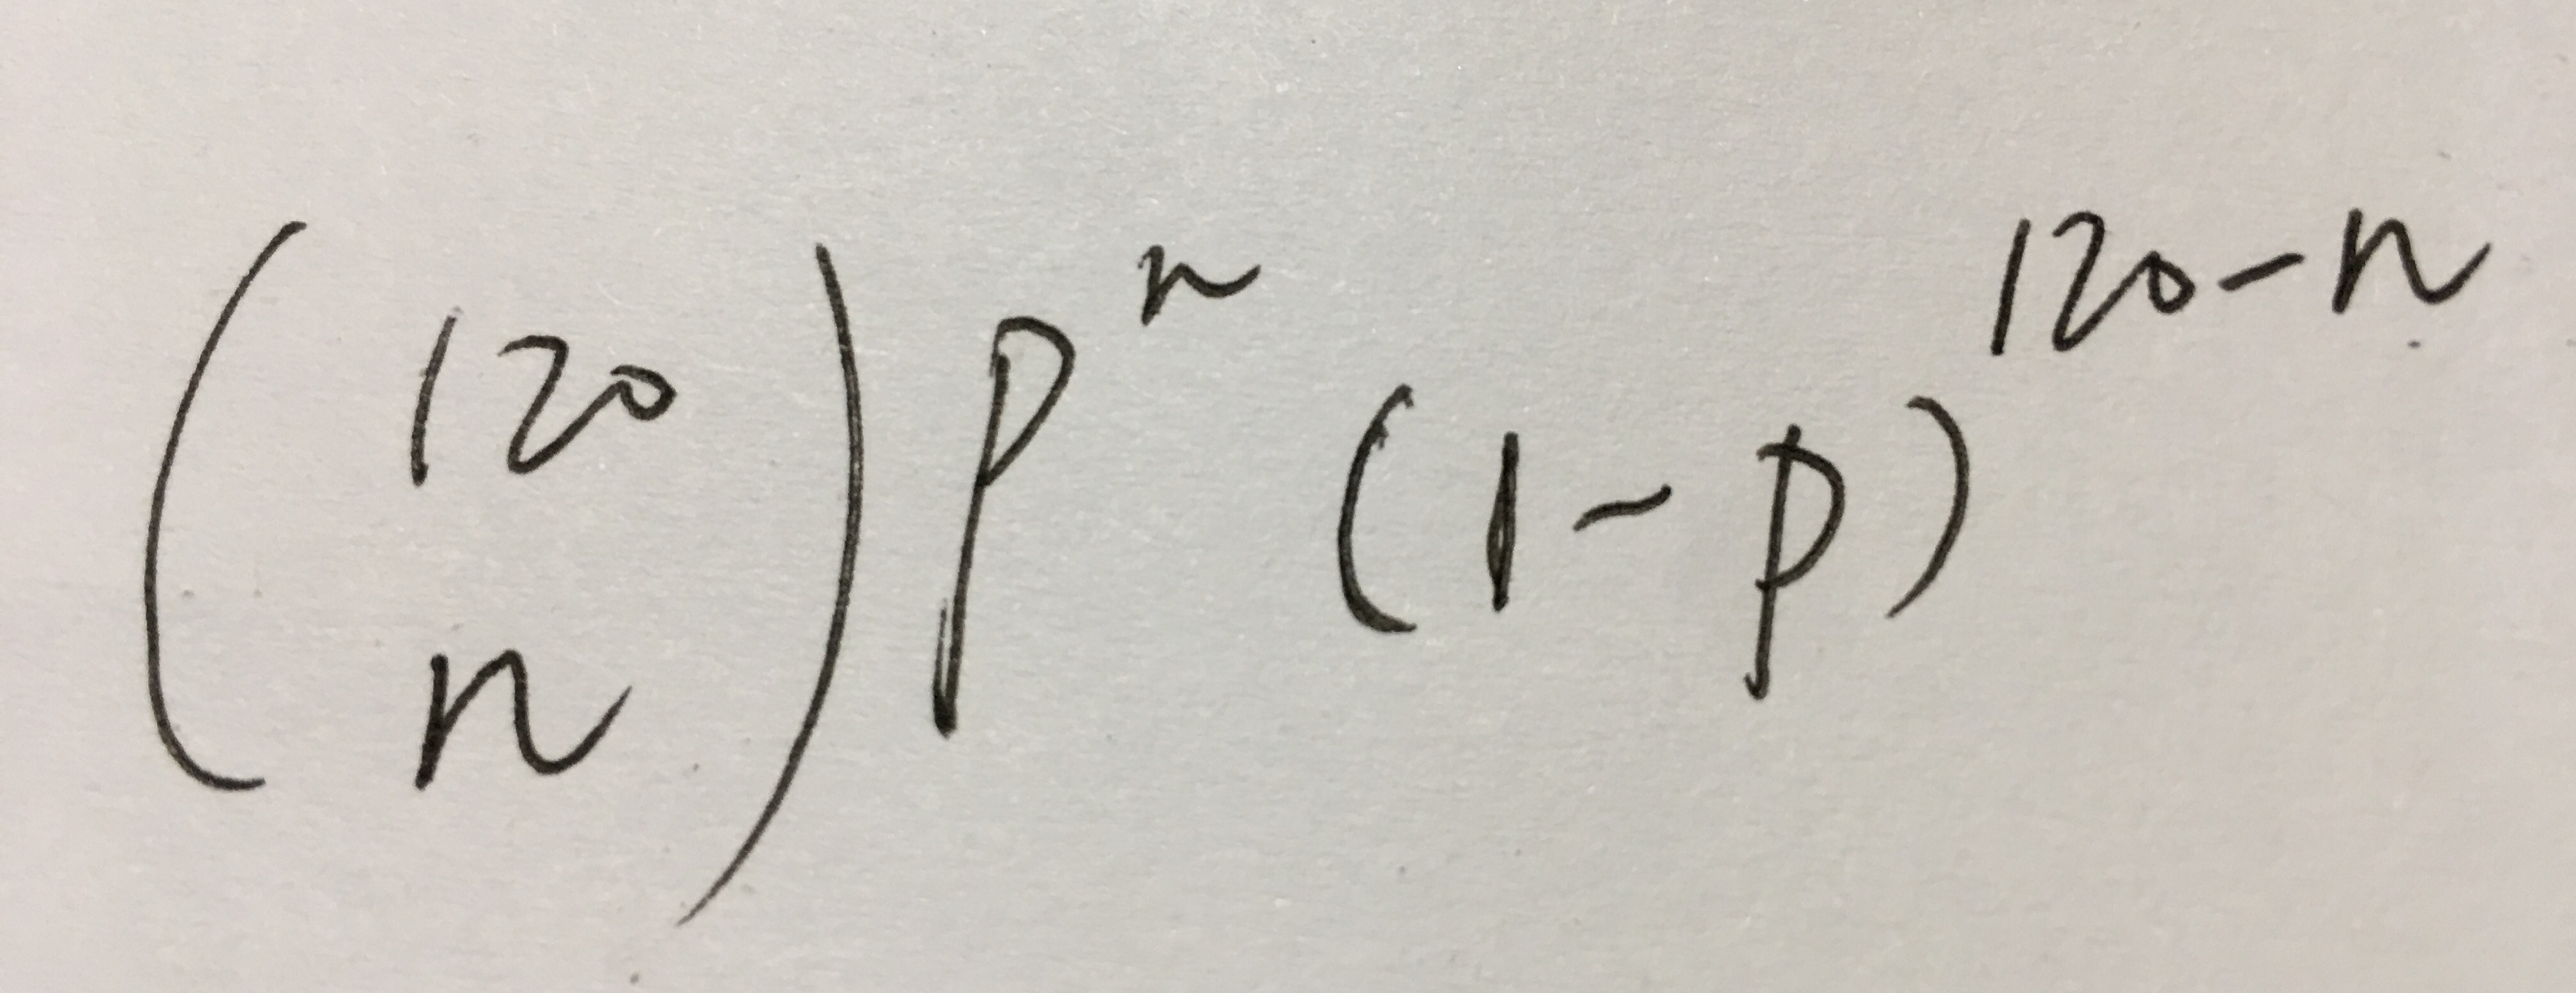 \binom{120}{n} p^n (1-p)^{120-n}